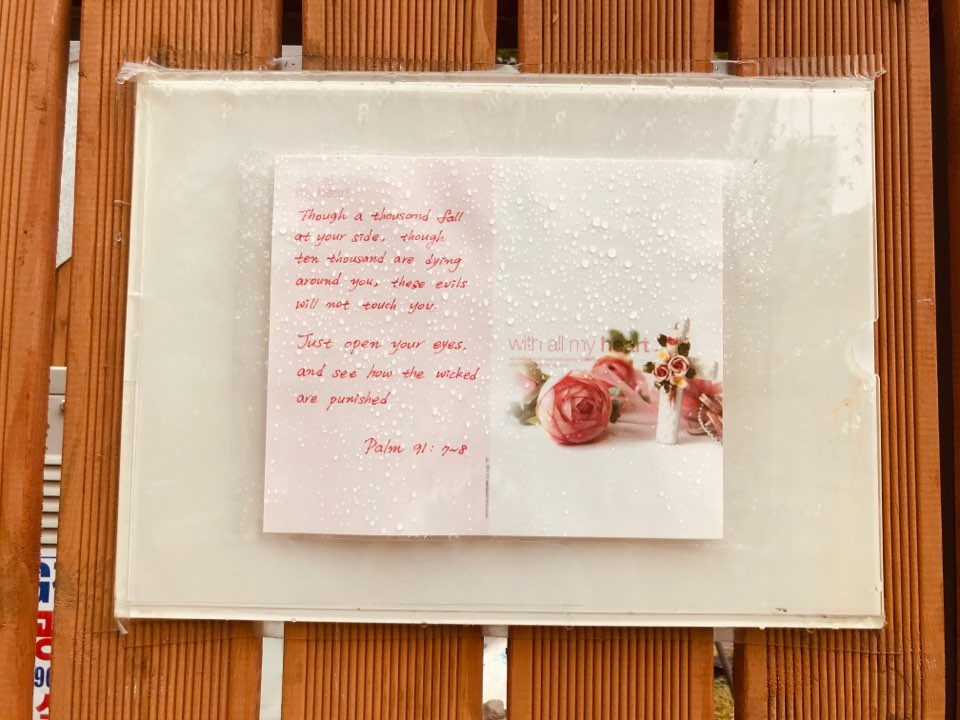 Though a thousand fall
at your side, though
ten thousand are dying
around you, these evils
will not touch you.
Just open your eyes,
and see how the wicked
are punished
Palm 91: 7~8
with all my heart